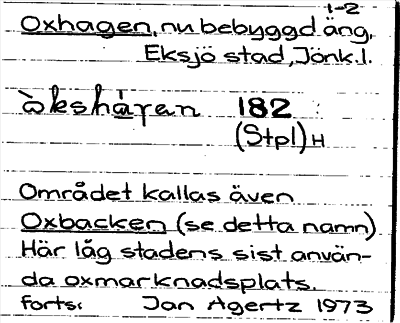 1-2
Oxhagen, nu bebyggd äng,
Eksjö stad, Jönk.l.
òkshàgan 182
(Stpl) H
Området kallas även
Oxbacken (se detta namn)
Här låg stadens sist använ-
da oxmarknadsplats.
forts. Jan Agertz 1973